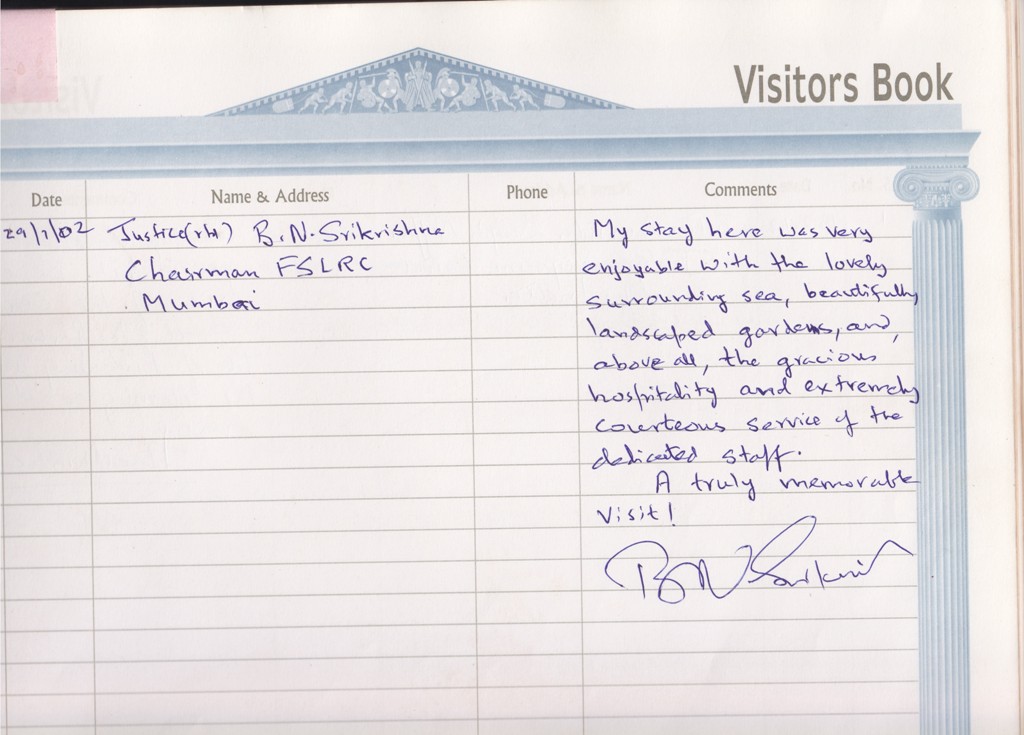 Visitors Book
Date Name & Address Phone Comments
29/1/02 Justice(rtd) B.N.Srikrishna
Chairman FSLRC
Mumbai
My stay here was very
enjoyable with the lovely
surrounding sea, beautifully
landscaped gardens, and,
above all, the gracious
hospitality and extremely
courteous service of the
dedicated staff.
A truly memorable
visit!